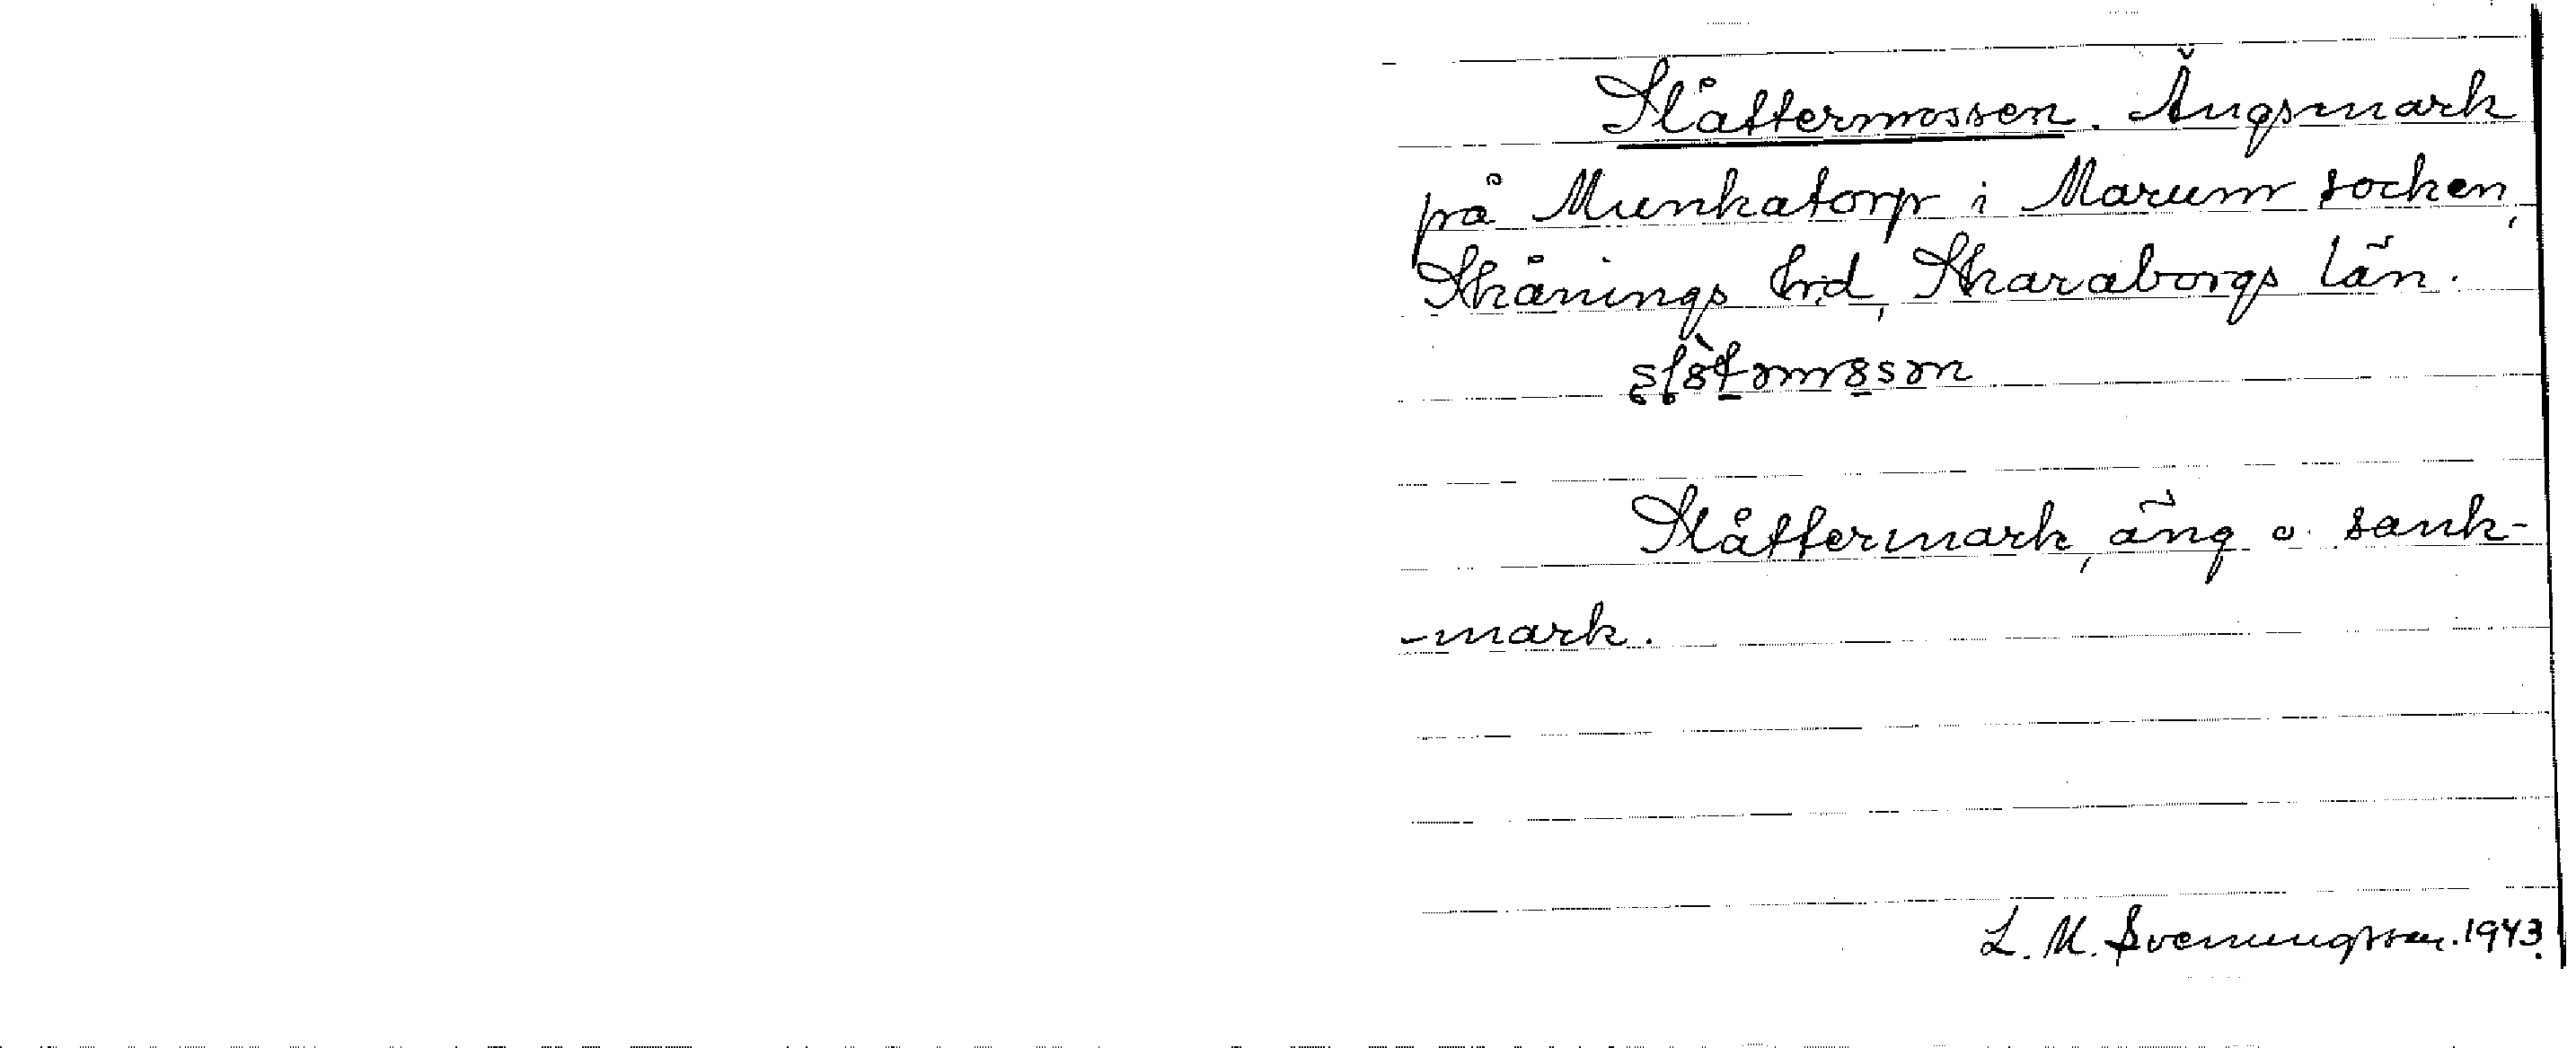 Slåttermossen. Ängsmark
på Munkatorp i Marum socken,
Skånings hrd, Skaraborgs län.
Slåttermark, äng o. sank-
-mark.
L. M. Svenungsson. 1943.